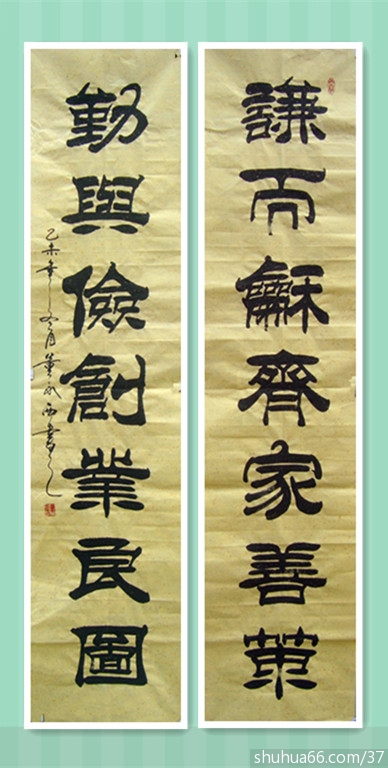 謙而龢齊家善策
勤與儉創業良圖
乙未年冬月董西書
shuhua66.com/37